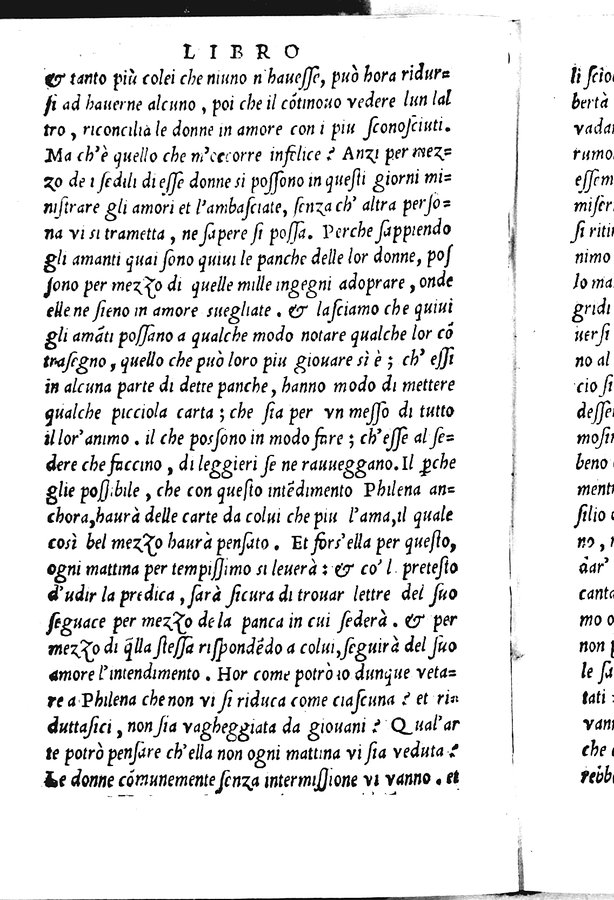 LIBRO
& tanto più colei che niuno n'hauesse, può hora ridur=
si ad hauerne alcuno, poi che il cõtinouo vedere lun lal
tro, riconcilia le donne in amore con i piu sconosciuti.
Ma ch'è quello che m'occorre infelice? Anzi per mez=
zo de i sedili di esse donne si possono in questi giorni mi=
nistrare gli amori et l'ambasciate, senza ch'altra perso=
na vi si trametta, ne sapere si possa. Perche sappiendo
gli amanti quai sono quiui le panche delle lor donne, pos
sono per mezzo di quelle mille ingegni adoprare, onde
elle ne sieno in amore suegliate. & lasciamo che quiui
gli amãti possano a qualche modo notare qualche lor cõ
trasegno, quello che può loro piu giouare sì è; ch'essi
in alcuna parte di dette panche, hanno modo di mettere
qualche picciola carta; che sia per vn messo di tutto
il lor'animo. il che possono in modo fare; ch'esse al se=
dere che faccino, di leggieri se ne rauueggano. Il ꝑche
glie possibile, che con questo intẽdimento Philena an=
chora, haurà delle carte da colui che piu l'ama, il quale
così bel mezzo haurà pensato. Et fors'ella per questo,
ogni mattina per tempissimo si leuerà: & co'l pretesto
d'udir la predica, sarà sicura di trouar lettere del suo
seguace per mezzo de la panca in cui sederà. & per
mezzo di q̃lla stessa rispondẽdo a colui, seguirà del suo
amore l'intendimento. Hor come potrò io dunque veta=
re a Philena che non vi si riduca come ciascuna? et rin
duttasici, non sia vagheggiata da giouani? Qual'ar
te potrò pensare ch'ella non ogni mattina vi sia veduta?
Le donne cõmunemente senza intermissione vi vanno. et
li scio
bertà
vada
rumo
essem
miser
si riti
nimo
lo ma
gridi
uersi
no al
cio si
desse
mosin
beno
menti
silio
no,
dar'
canta
mo o
non p
le sa
tati
vann
che
rebb